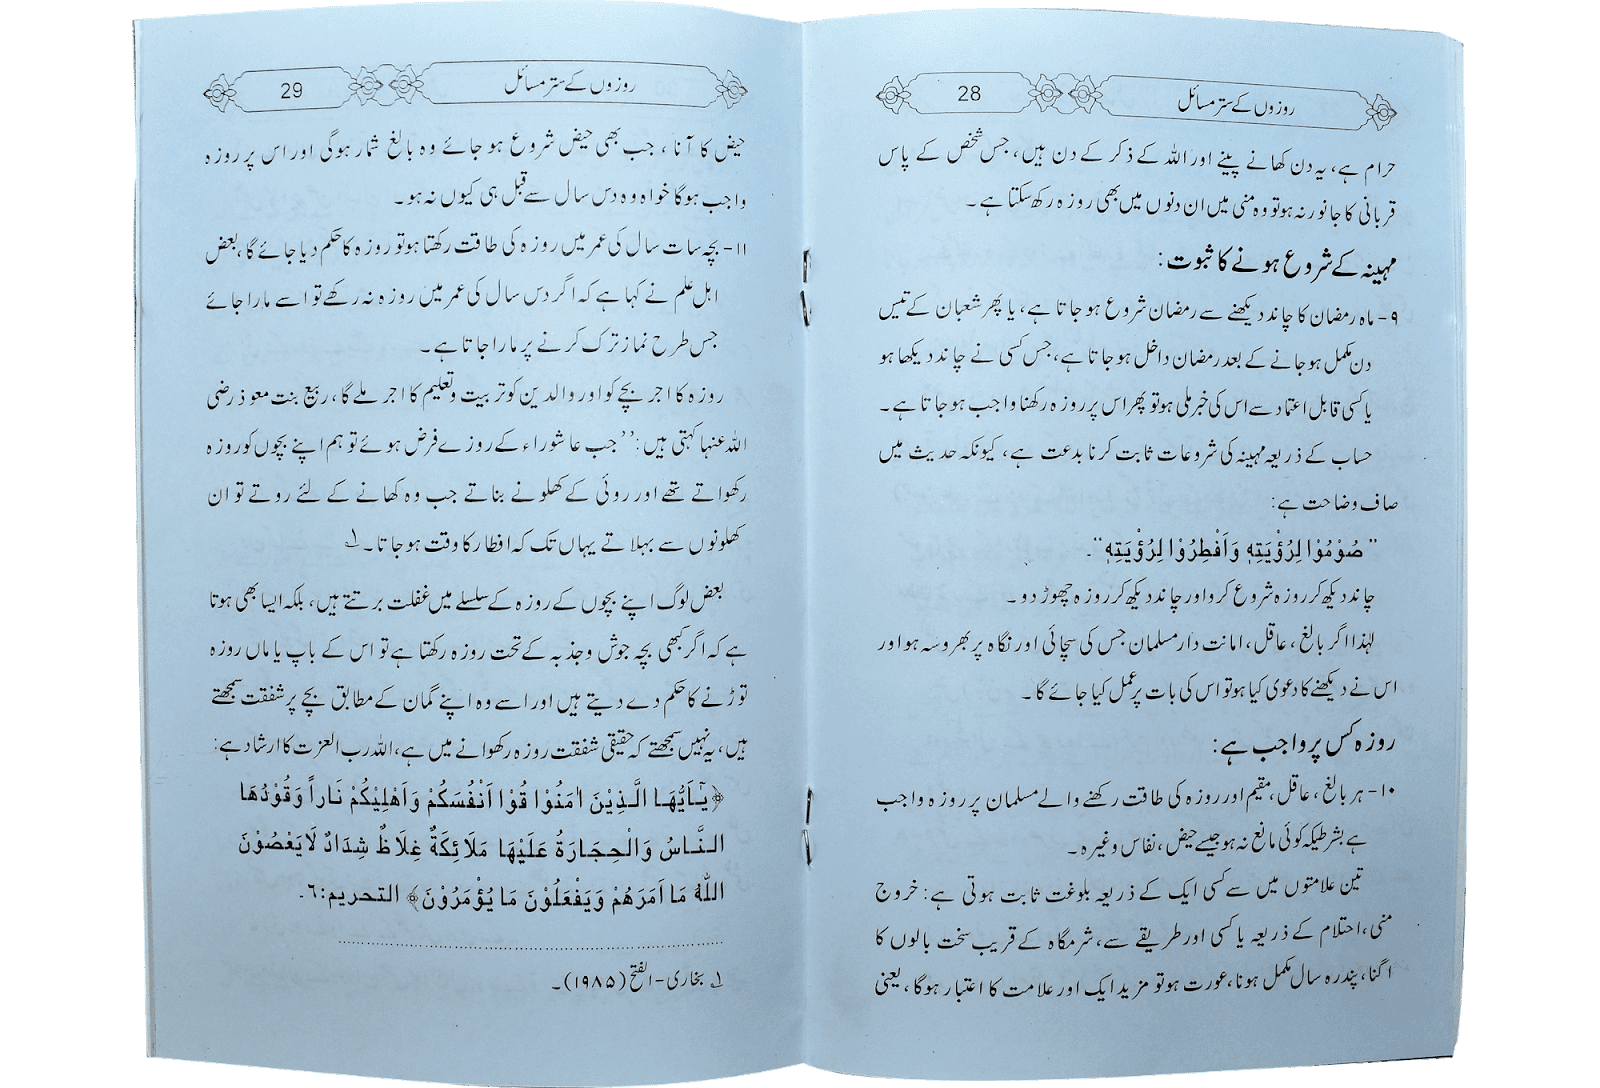 روزوں کے ستر مسائل
28
حرام ہے، یہ دن کھانے پینے اور اللہ کے ذکر کے دن ہیں، جس شخص کے پاس
قربانی کا جانور نہ ہو تو وہ منی میں ان دنوں میں بھی روزہ رکھ سکتا ہے۔
مہینہ کے شروع ہونے کا ثبوت:
۹- ماہ رمضان کا چاند دیکھنے سے رمضان شروع ہو جاتا ہے، یا پھر شعبان کے تیس
دن مکمل ہو جانے کے بعد رمضان داخل ہو جاتا ہے، جس کسی نے چاند دیکھا ہو
یا کسی قابل اعتماد سے اس کی خبر ملی ہو تو پھر اس پر روزہ رکھنا واجب ہو جاتا ہے۔
حساب کے ذریعہ مہینہ کی شروعات ثابت کرنا بدعت ہے، کیونکہ حدیث میں
صاف وضاحت ہے:
”صُوْمُوْا لِرُؤْيَتِهٖ وَاَفْطِرُوْا لِرُؤْيَتِهٖ“۔
چاند دیکھ کر روزہ شروع کرو اور چاند دیکھ کر روزہ چھوڑ دو۔
لہٰذا اگر بالغ، عاقل، امانت دار مسلمان جس کی سچائی اور نگاہ پر بھروسہ ہو اور
اس نے دیکھنے کا دعوی کیا ہو تو اس کی بات پر عمل کیا جائے گا۔
روزہ کس پر واجب ہے:
۱۰- ہر بالغ، عاقل، مقیم اور روزہ کی طاقت رکھنے والے مسلمان پر روزہ واجب
ہے بشرطیکہ کوئی مانع نہ ہو جیسے حیض، نفاس وغیرہ۔
تین علامتوں میں سے کسی ایک کے ذریعہ بلوغت ثابت ہوتی ہے: خروج
منی، احتلام کے ذریعہ یا کسی اور طریقے سے، شرمگاہ کے قریب سخت بالوں کا
اگنا، پندرہ سال مکمل ہونا، عورت ہو تو مزید ایک اور علامت کا اعتبار ہوگا، یعنی
روزوں کے ستر مسائل
29
حیض کا آنا، جب بھی حیض شروع ہو جائے وہ بالغ شمار ہوگی اور اس پر روزہ
واجب ہوگا خواہ وہ دس سال سے قبل ہی کیوں نہ ہو۔
۱۱- بچہ سات سال کی عمر میں روزہ کی طاقت رکھتا ہو تو روزہ کا حکم دیا جائے گا، بعض
اہل علم نے کہا ہے کہ اگر دس سال کی عمر میں روزہ نہ رکھے تو اسے مارا جائے
جس طرح نماز ترک کرنے پر مارا جاتا ہے۔
روزہ کا اجر بچے کو اور والدین کو تربیت و تعلیم کا اجر ملے گا، ربیع بنت معوذ رضی
اللہ عنہا کہتی ہیں: ’’جب عاشوراء کے روزے فرض ہوئے تو ہم اپنے بچوں کو روزہ
رکھواتے تھے اور روئی کے کھلونے بناتے جب وہ کھانے کے لئے روتے تو ان
کھلونوں سے بہلاتے یہاں تک کہ افطار کا وقت ہو جاتا۔ ۱؎
بعض لوگ اپنے بچوں کے روزہ کے سلسلے میں غفلت برتتے ہیں، بلکہ ایسا بھی ہوتا
ہے کہ اگر کبھی بچہ جوش و جذبہ کے تحت روزہ رکھتا ہے تو اس کے باپ یا ماں روزہ
توڑنے کا حکم دے دیتے ہیں اور اسے وہ اپنے گمان کے مطابق بچے پر شفقت سمجھتے
ہیں، یہ نہیں سمجھتے کہ حقیقی شفقت روزہ رکھوانے میں ہے، اللہ رب العزت کا ارشاد ہے:
﴿يٰۤاَيُّهَا الَّذِيْنَ اٰمَنُوْا قُوْا اَنْفُسَكُمْ وَاَهْلِيْكُمْ نَاراً وَقُوْدُهَا
النَّاسُ وَالْحِجَارَةُ عَلَيْهَا مَلَائِكَةٌ غِلَاظٌ شِدَادٌ لَا يَعْصُوْنَ
اللّٰهَ مَا اَمَرَهُمْ وَيَفْعَلُوْنَ مَا يُؤْمَرُوْنَ﴾ التحريم: ٦۔
۱؎ بخاری-الفتح (۱۹۸۵)۔